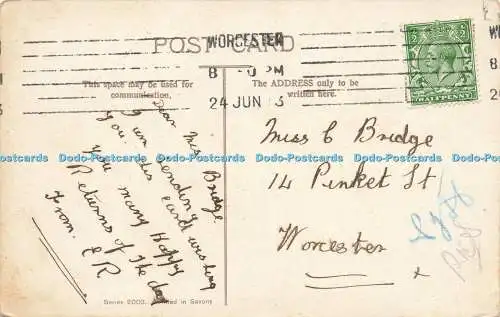 POST CARD
WORCESTER
8 0 PM
24 JUN 13
HALFPENNY
This space may be used for
communication.
The ADDRESS only to be
written here.
Dear Miss Bridge
I am sending
you this card wishing
you many Happy
Returns of the day
From. E R
Miss C Bridge
14 Pinket St
Worcester
Series 2003. Printed in Saxony
Dodo-Postcards Dodo-Postcards Dodo-Postcards Dodo-Postcards Dodo-Postcards